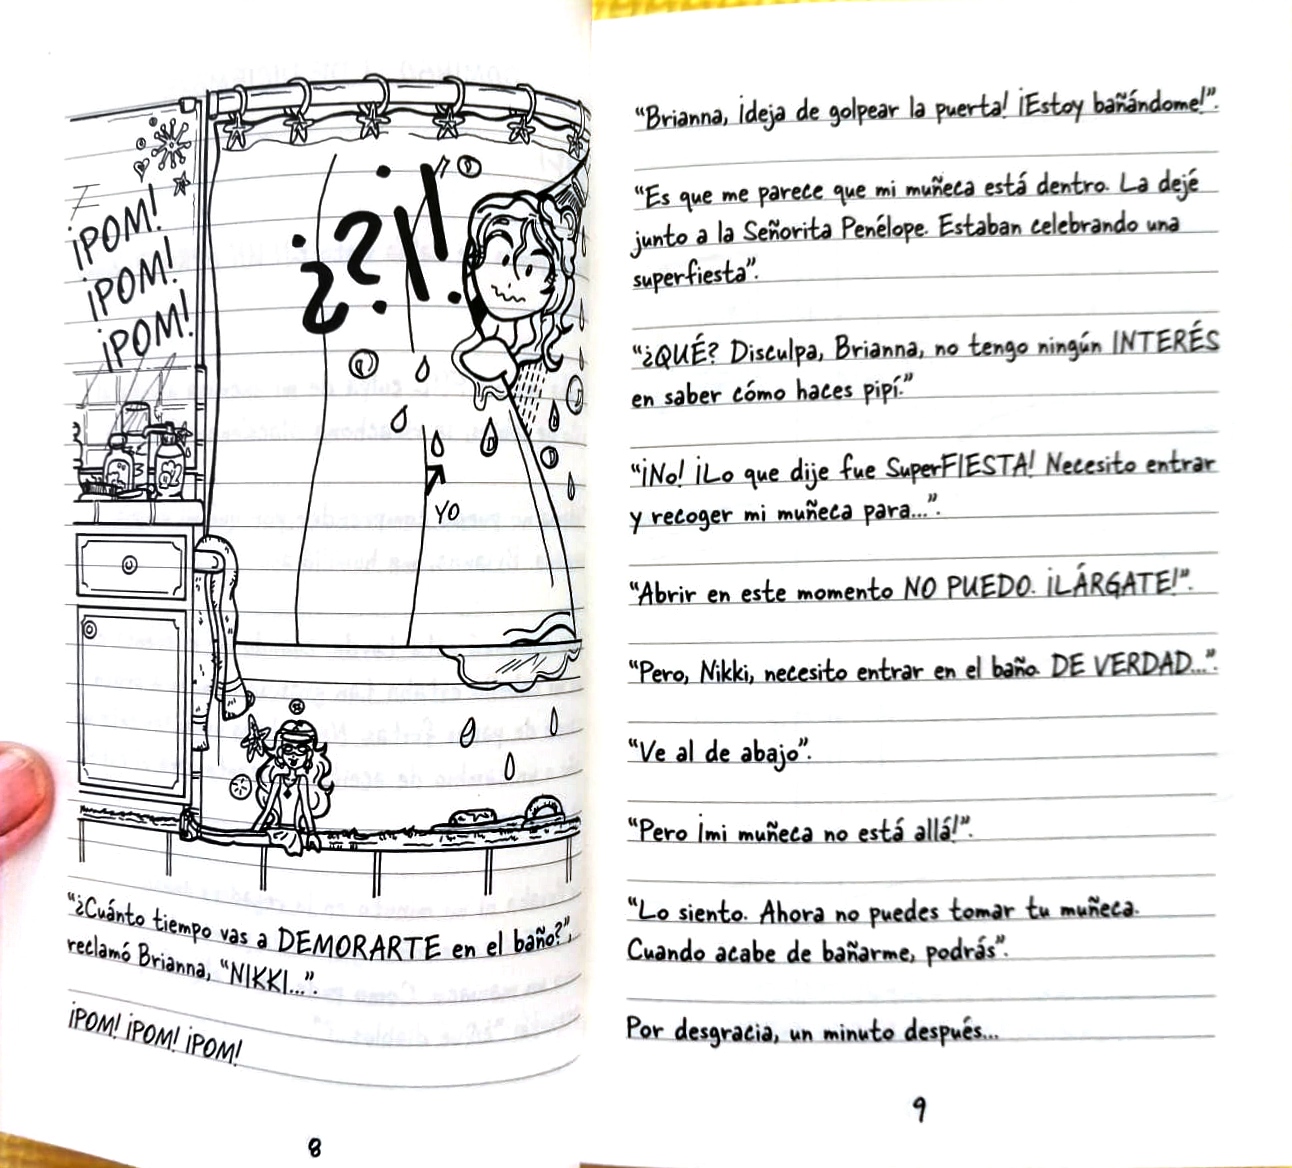 ¡POM!
¡POM!
¡POM!
¿?¡!
YO
“¿Cuánto tiempo vas a DEMORARTE en el baño?”,
reclamó Brianna, “NIKKI...”.
¡POM! ¡POM! ¡POM!
8
“Brianna, ¡deja de golpear la puerta! ¡Estoy bañándome!”.
“Es que me parece que mi muñeca está dentro. La dejé
junto a la Señorita Penélope. Estaban celebrando una
superfiesta”.
“¿QUÉ? Disculpa, Brianna, no tengo ningún INTERÉS
en saber cómo haces pipí.”
“¡No! ¡Lo que dije fue SuperFIESTA! Necesito entrar
y recoger mi muñeca para...”.
“Abrir en este momento NO PUEDO. ¡LÁRGATE!”.
“Pero, Nikki, necesito entrar en el baño. DE VERDAD...”.
“Ve al de abajo”.
“Pero ¡mi muñeca no está allá!”.
“Lo siento. Ahora no puedes tomar tu muñeca.
Cuando acabe de bañarme, podrás”.
Por desgracia, un minuto después...
9